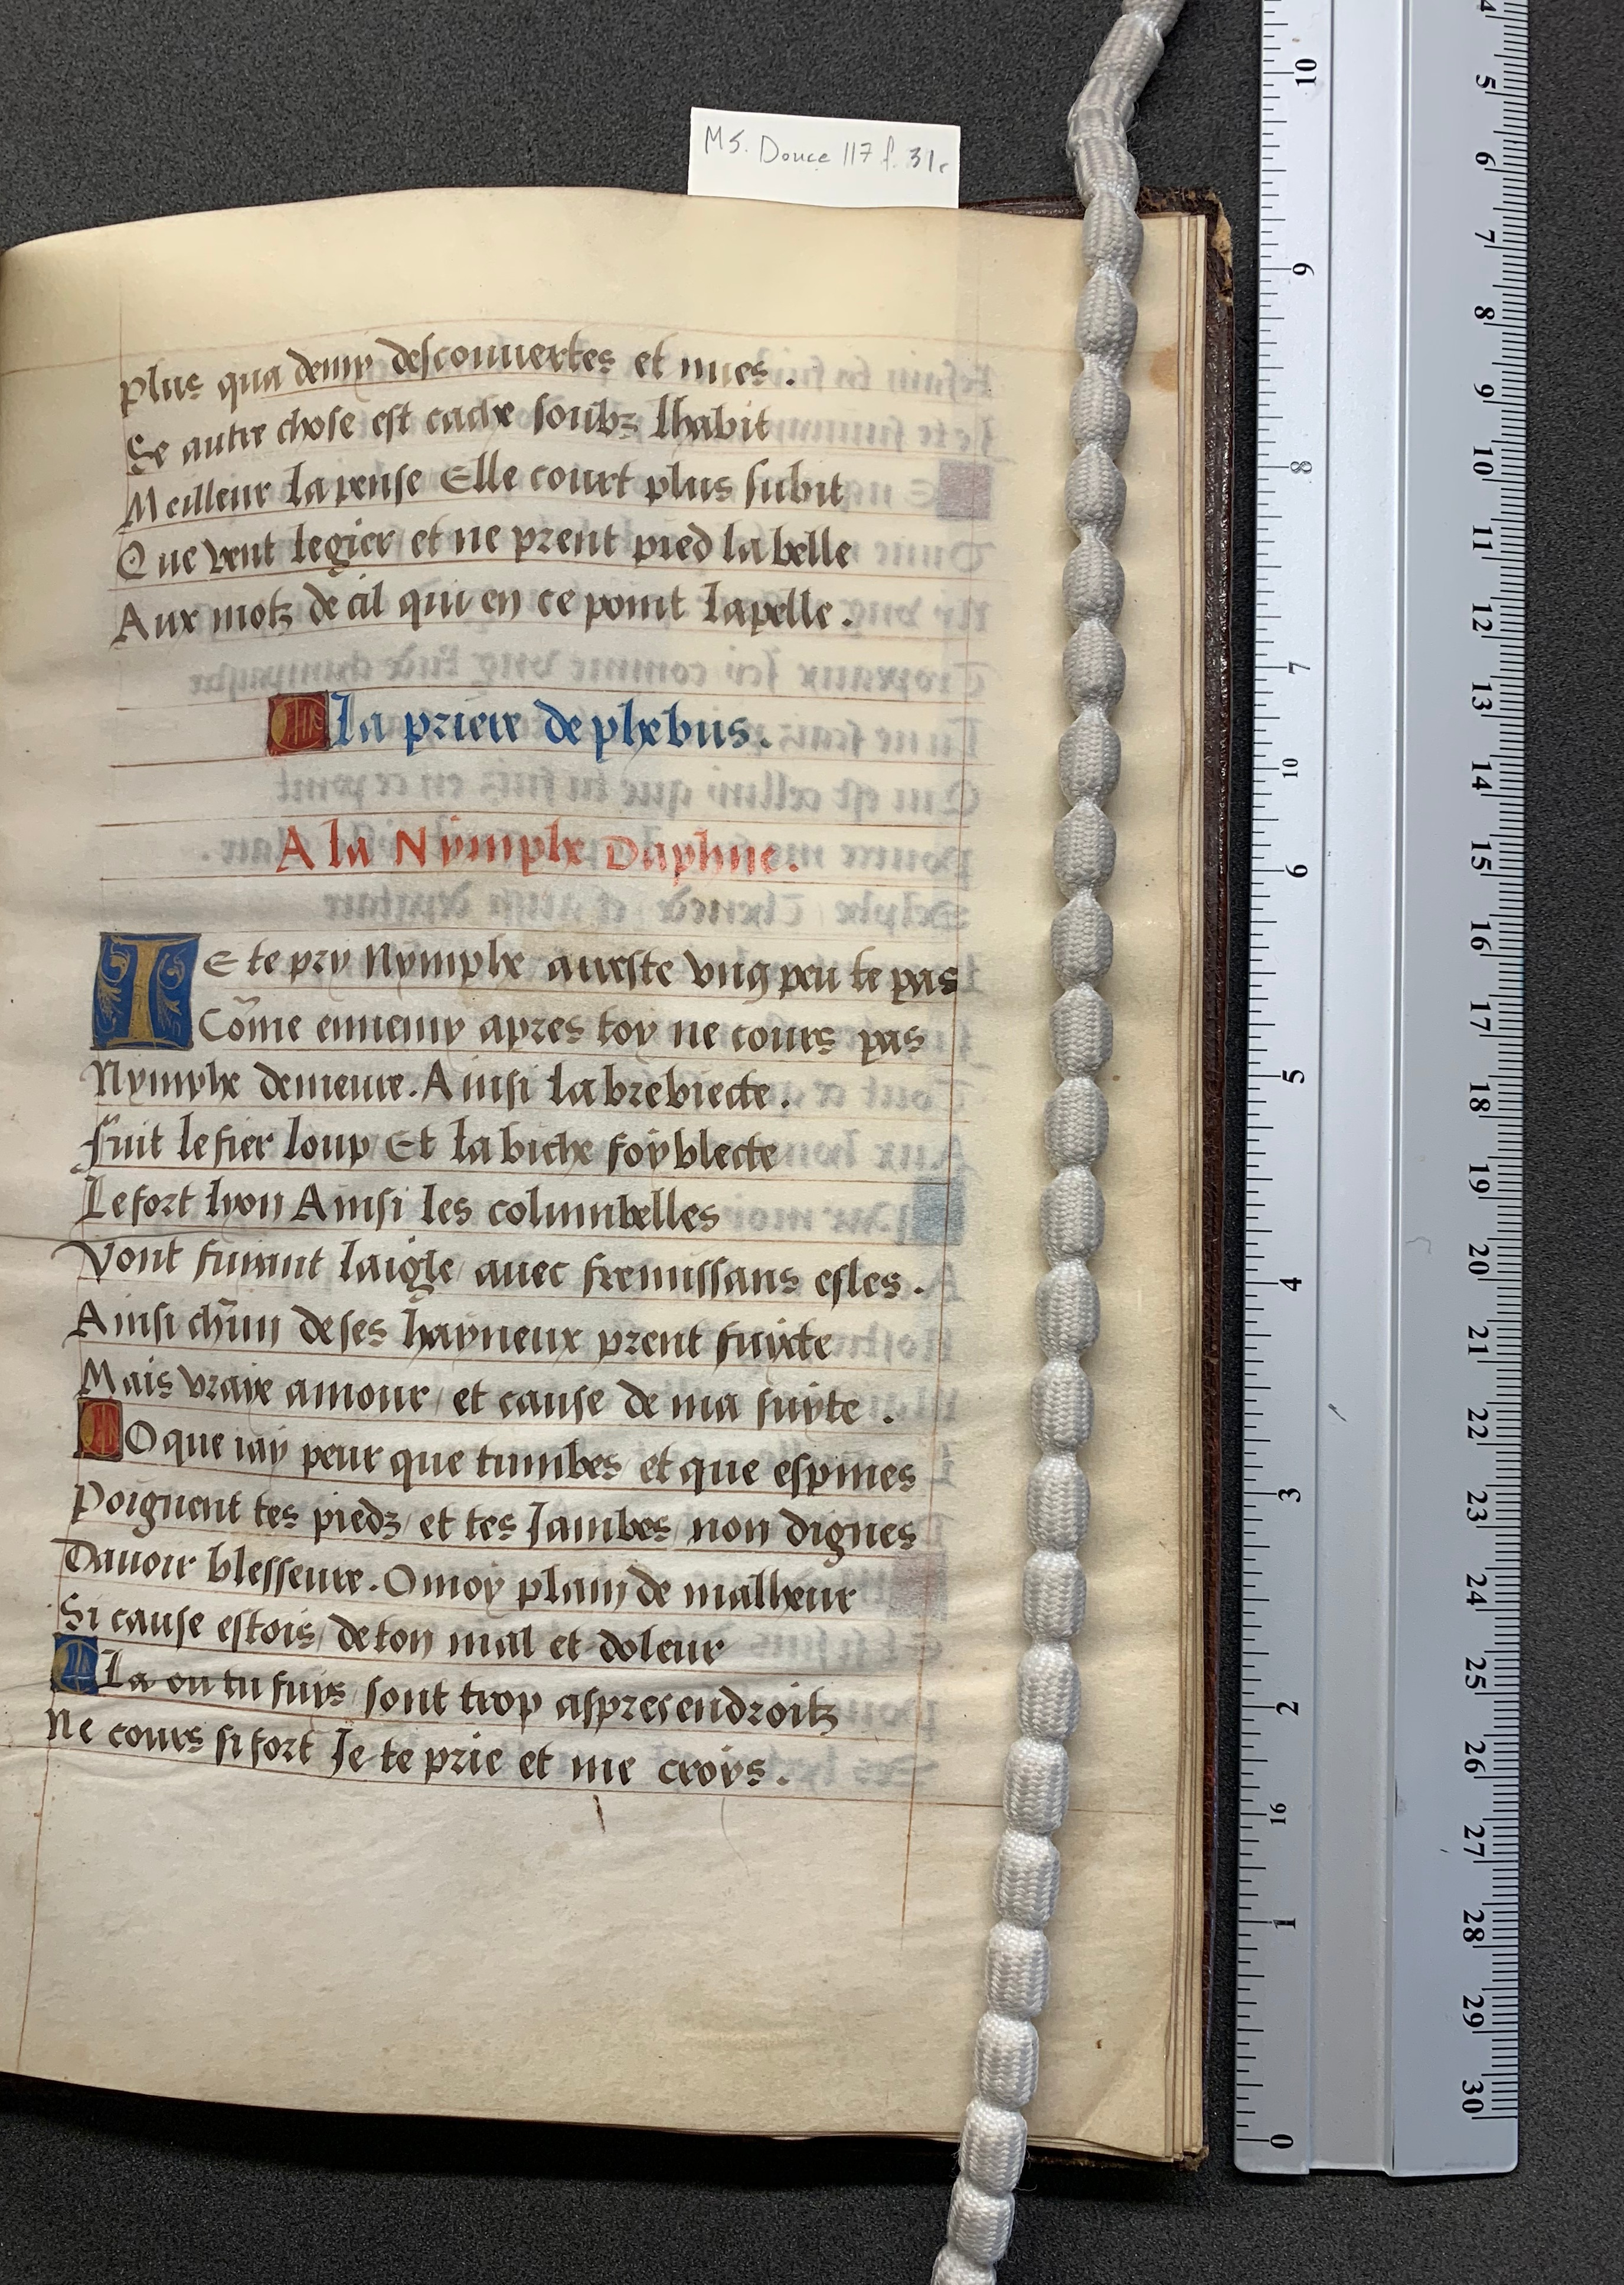 MS. Douce 117 f. 31r
plus qua demy descouuertes et nues .
Se autre chose est cache soubz lhabit
Meilleur la pense Elle court plus subit
Que vent legier / et ne prent pied la belle
Aux motz de cil qui en ce point lapelle .
La priere de phebus .
A la Nymphe Daphne .
IE te pry Nymphe arreste vng peu te pas
Cõme ennemy apres toy ne cours pas
Nymphe demeure . Ainsi la brebiecte .
Fuit le fier loup / Et la biche foyblecte
Le fort lyon Ainsi les columbelles
Vont fuyant laigle / auec fremissans esles .
Ainsi chũn de ses hayneux prent fuyte
Mais vraye amour / et cause de ma suyte .
O que iay peur que tumbes et que espines
Poignent tes piedz / et tes Jambes / non dignes
Dauoir blesseure . O moy plain de malheur
Si cause estois / de ton mal et doleur
La ou tu fuys / sont trop aspres endroitz
Ne cours si fort Je te prie et me croys .
10
9
8
7
10
6
5
4
3
2
16
1
0
4
5
6
7
8
9
10
11
12
13
14
15
16
17
18
19
20
21
22
23
24
25
26
27
28
29
30